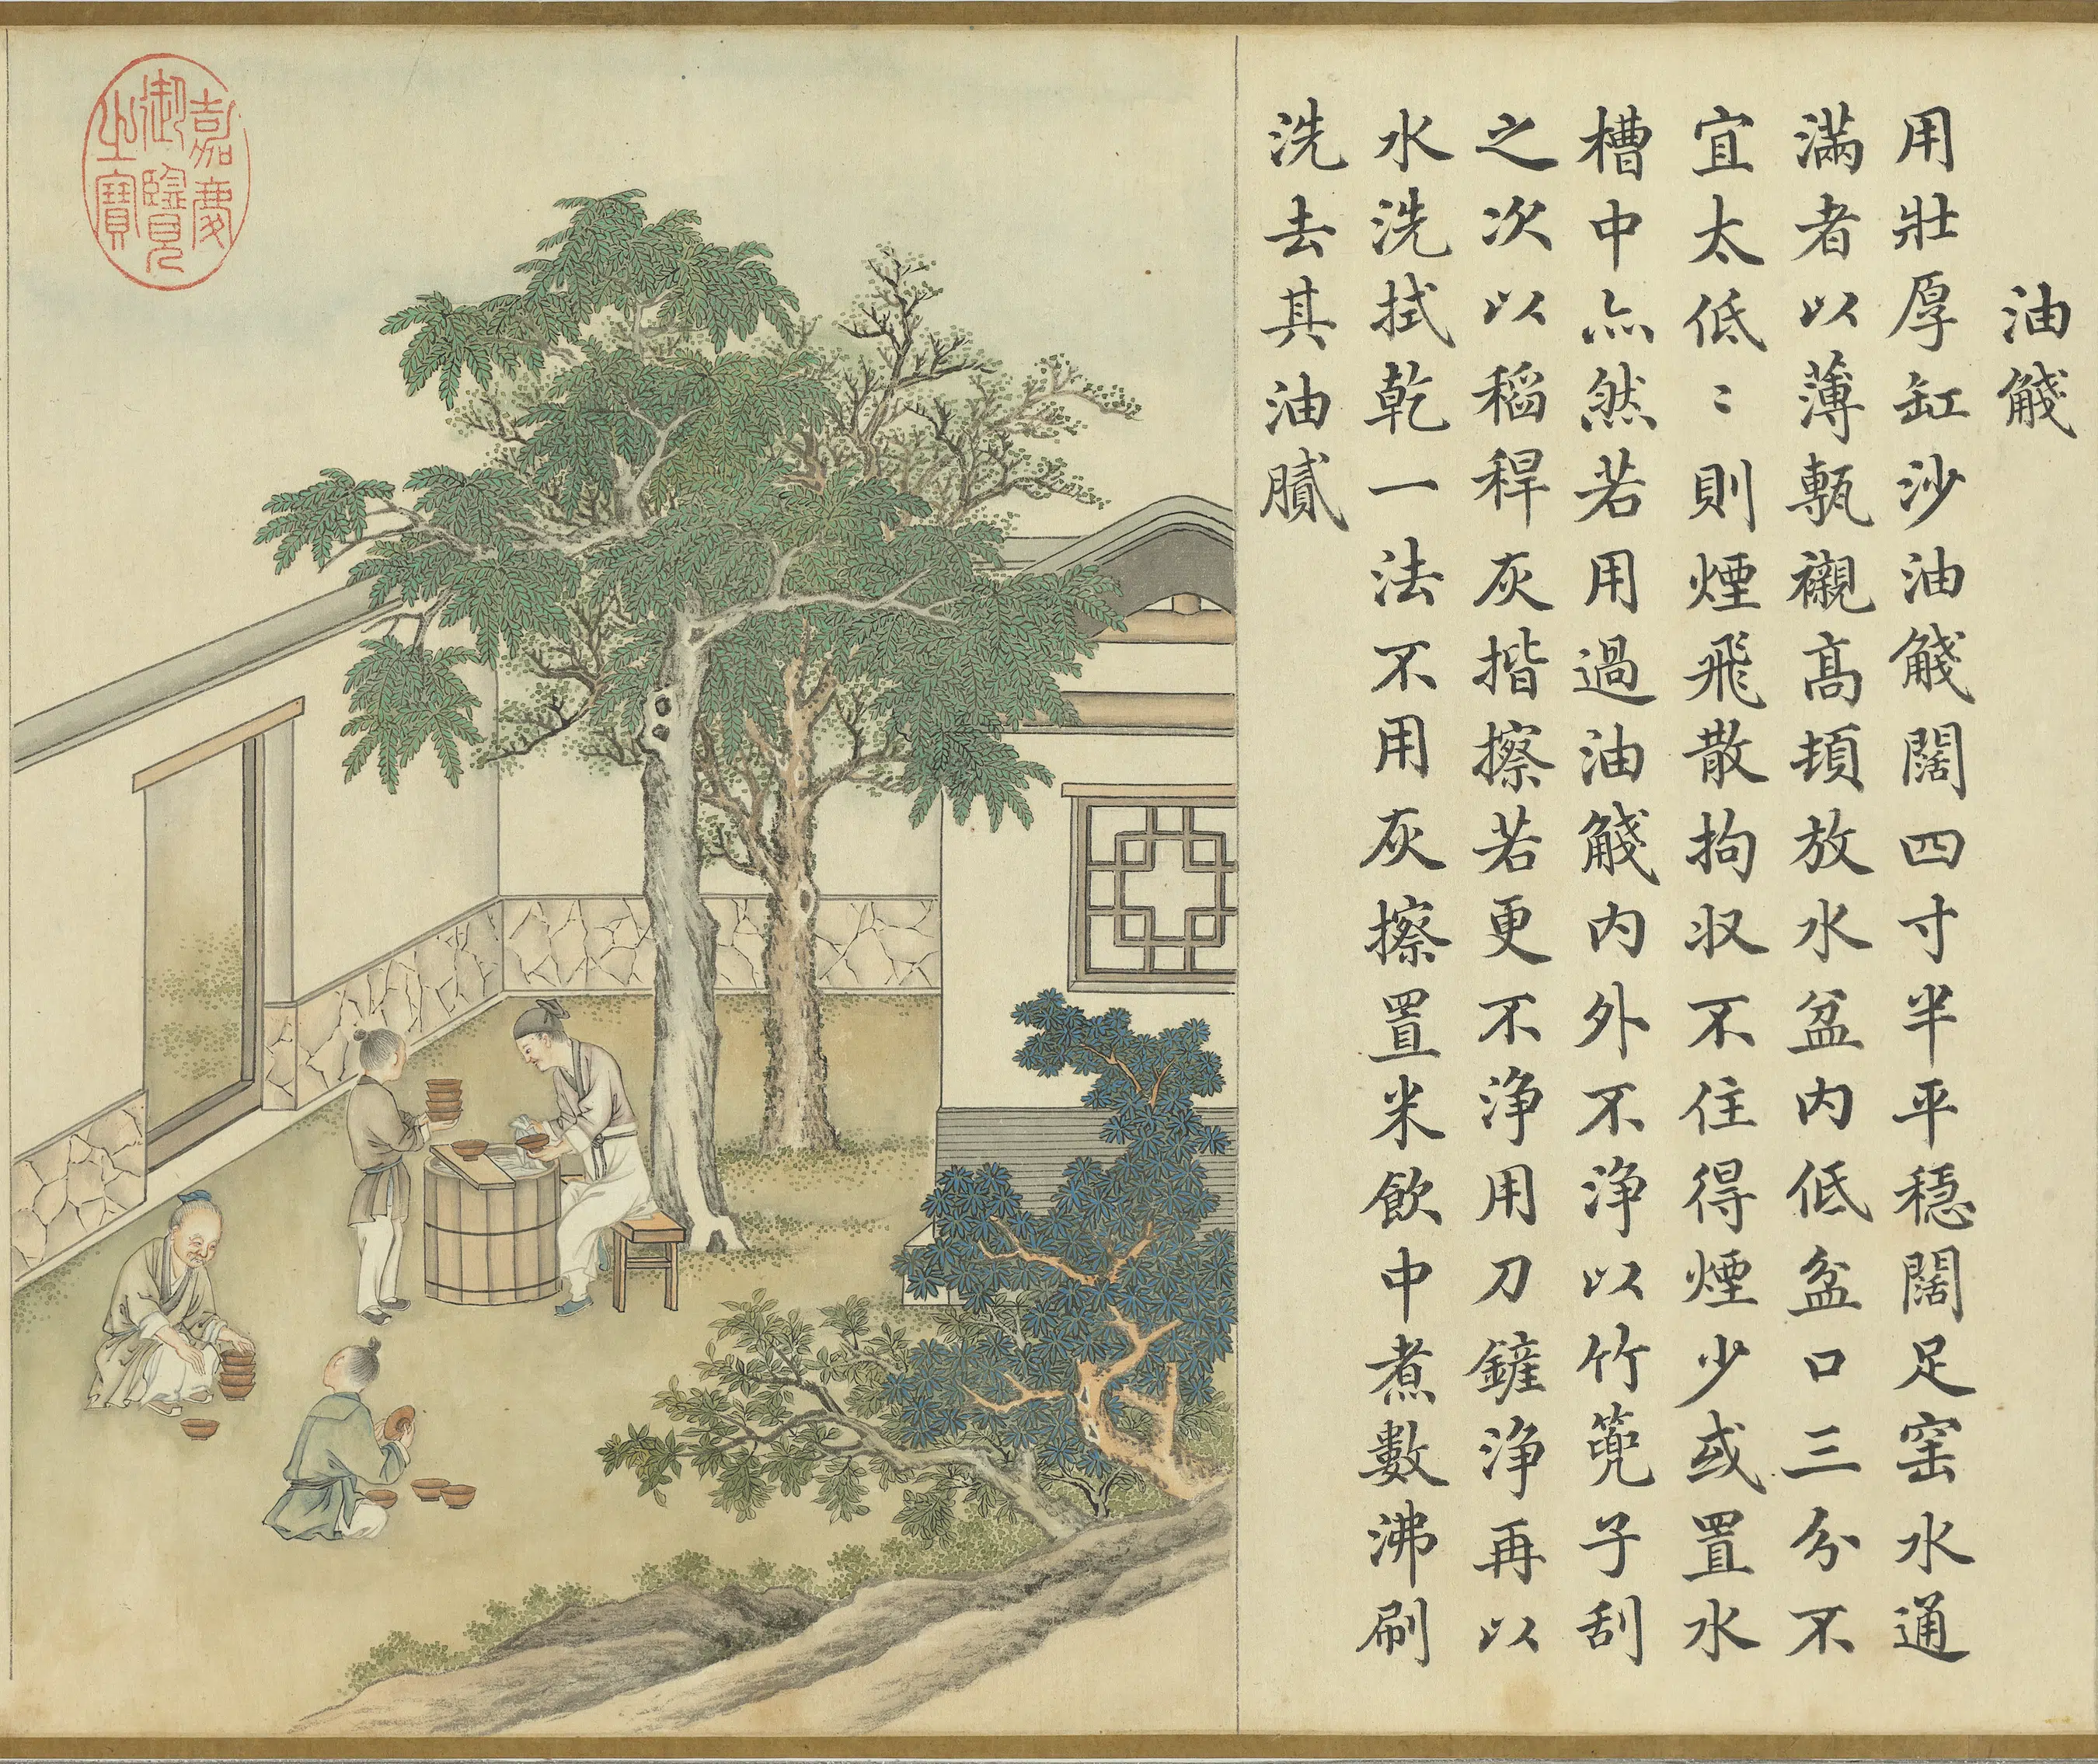 油
用壯厚缸沙油闊四寸半平穩闊足窑水通
滿者以薄甎襯髙頓放水盆内低盆口三分不
宜太低〻則煙飛散拘収不住得煙少或置水
槽中亦然若用過油内外不浄以竹篼子刮
之次以稻稈灰揩擦若更不浄用刀鏟浄再以
水洗拭乾一法不用灰擦置米飲中煮數沸刷
洗去其油膩
嘉慶
御覽
之寶